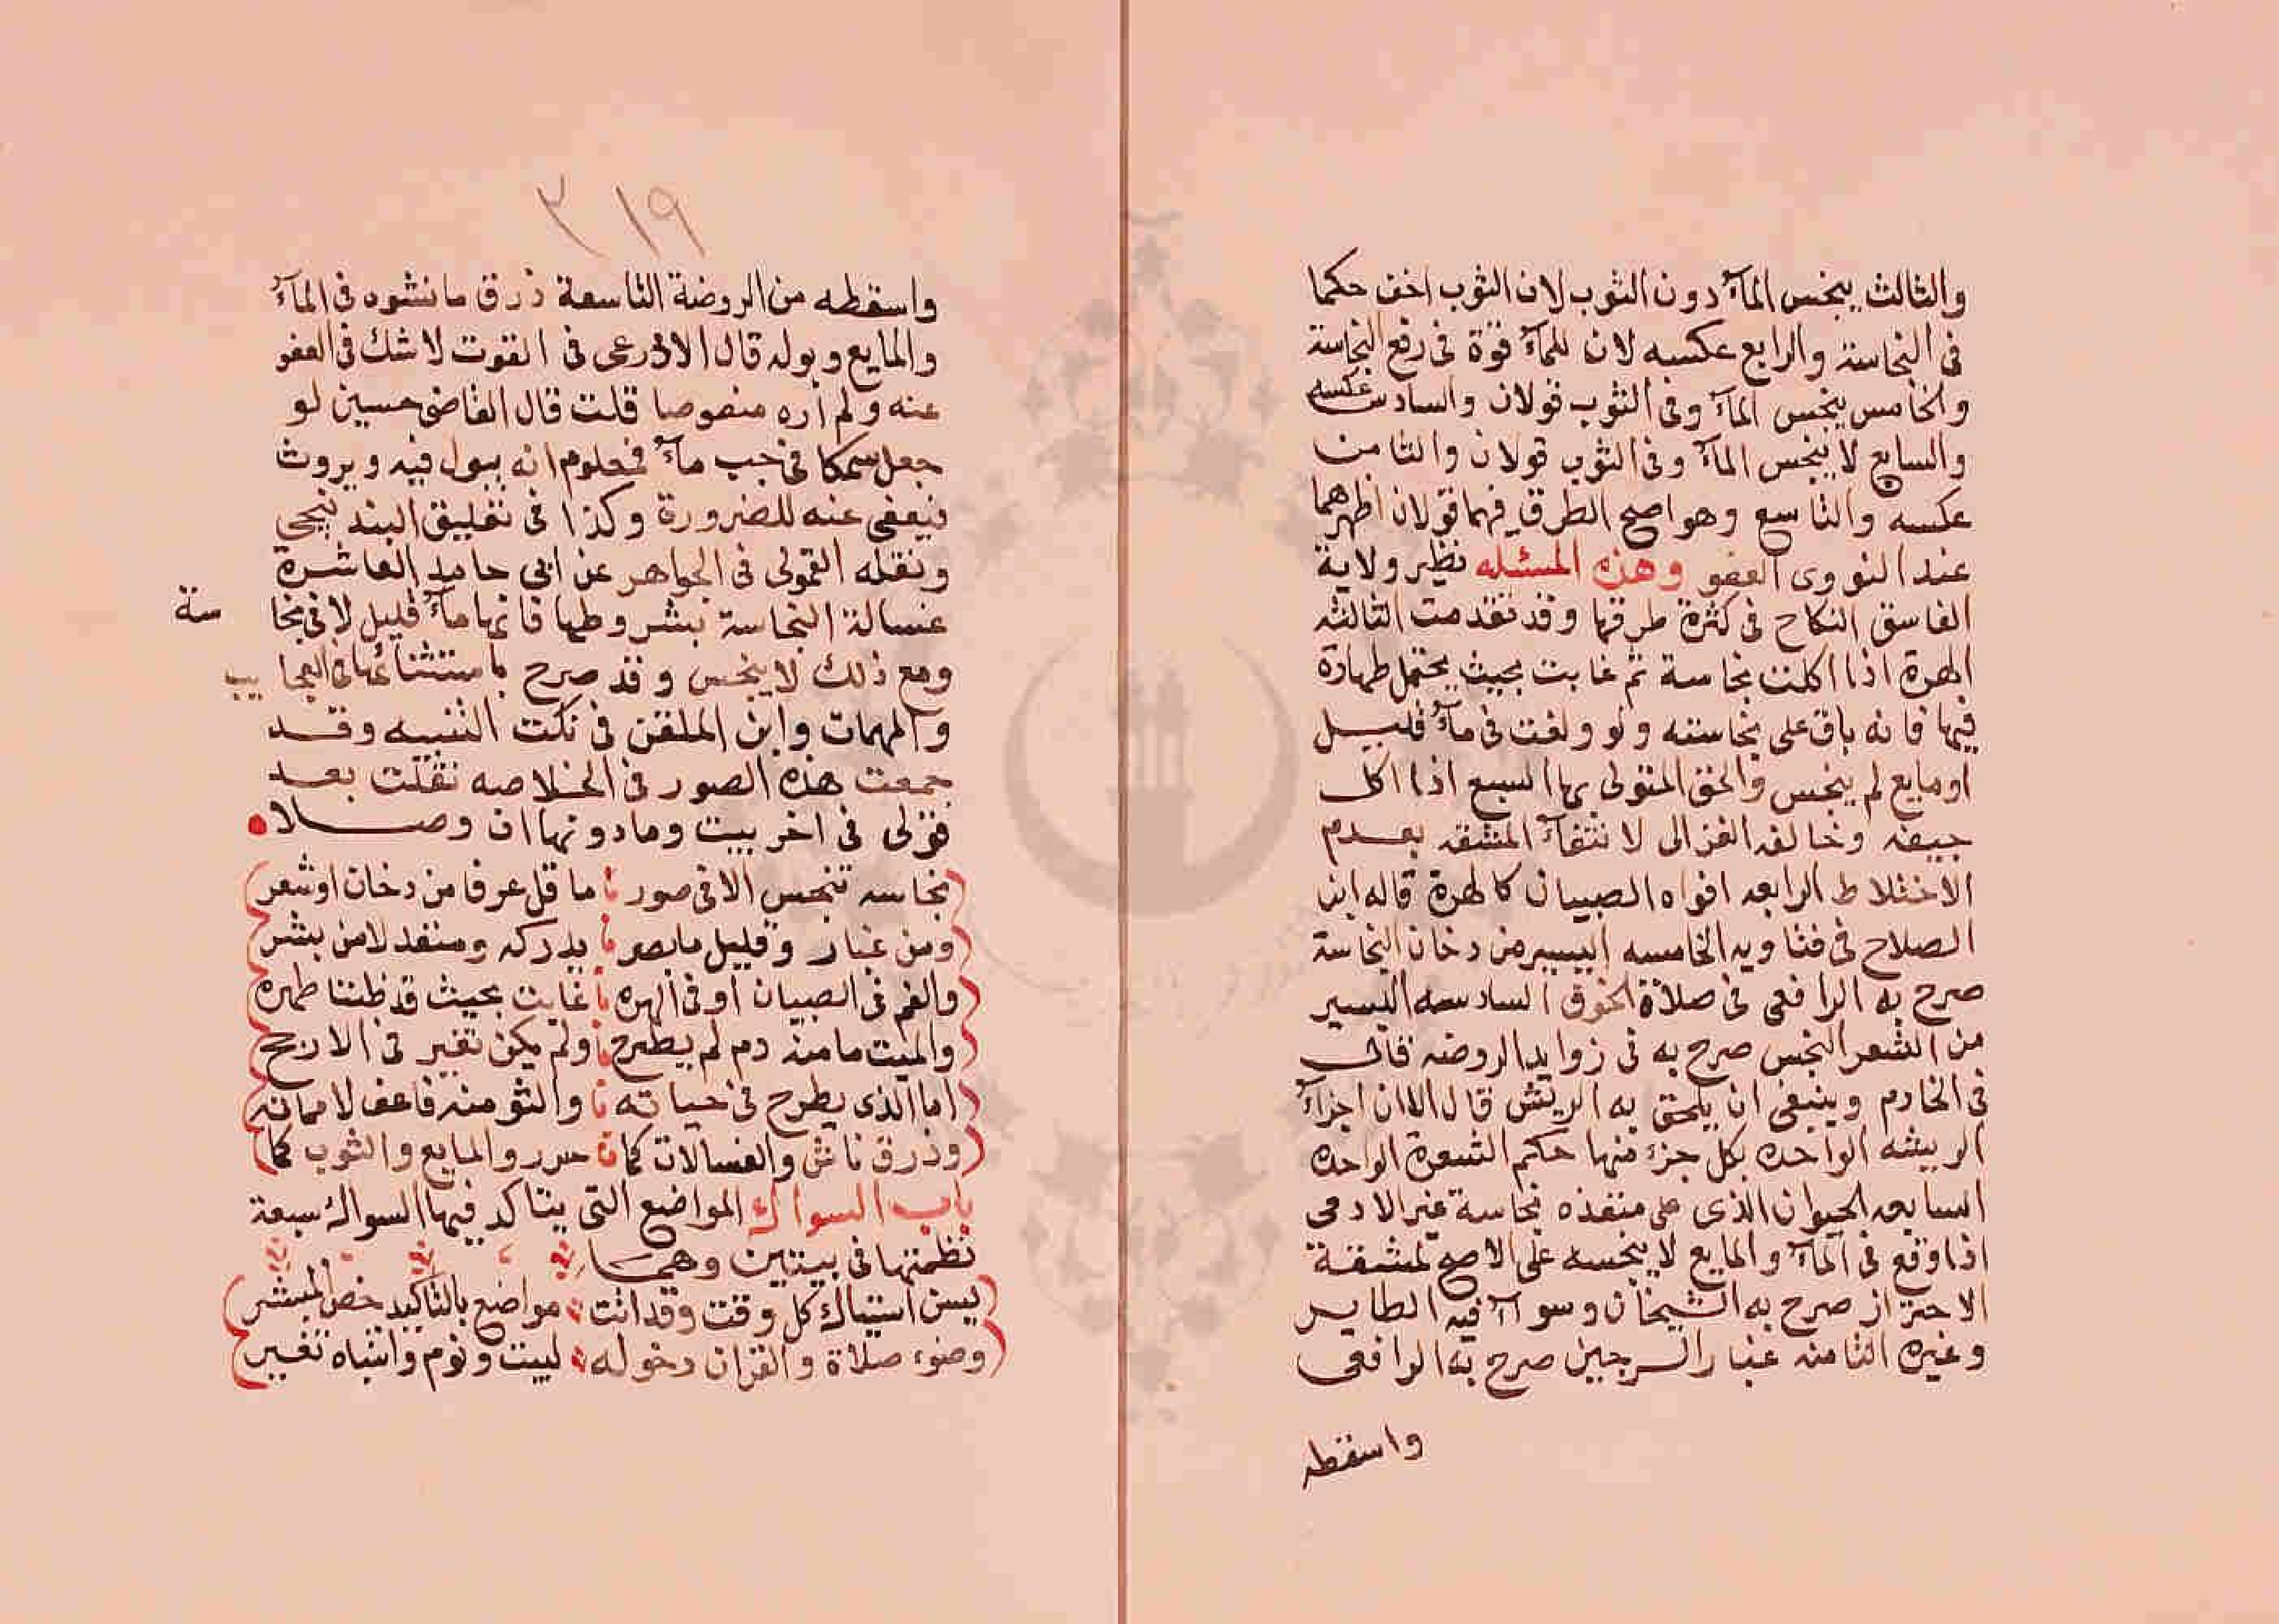 والثالث ينجس المآء دون الثوب لان الثوب اخف حكما
فى النجاسة والرابع عكسه لان للمآء قوة فى رفع النجاسة
والخامس ينجس المآء وفى الثوب قولان والسادس عكسه
والسابع لا ينجس المآء وفى الثوب قولان والثامن
عكسه والتاسع وهو اصح الطرق فيهما قولان اظهرهما
عند النووى العفو وهذه المسئله نظير ولاية
الفاسق النكاح فى كثرة طرقها وقد تقدمت الثالثه
الهرة اذا اكلت نجاسة ثم غابت بحيث يحتمل طهارة
فيها فانه باق على نجاسته ولو ولغت فى مآء قليل
او مايع لم ينجس والحق المتولى بها السبع اذا اكل
جيفه وخالفه الغزالى لانتفآء المشقه بعدم
الاختلاط الرابعه افواه الصبيان كالهرة قاله ابن
الصلاح فى فتاويه الخامسه اليسير من دخان النجاسة
صرح به الرافعى فى صلاة الخوف السادسه اليسير
من الشعر النجس صرح به فى زوايد الروضه قال
فى الخادم وينبغى ان يلحق به الريش قال الا ان اجزآء
الريشه الواحده بكل جزء منها حكم الشعرة الواحده
السابعه الحيوان الذى على منفذه نجاسة غير الادمى
اذا وقع فى المآء والمايع لا ينجسه على الاصح لمشقة
الاحتراز صرح به الشيخان وسوآء فيه الطاير
وغيره الثامنه غبار السرجين صرح به الرافعى
واسقطه
٢١٩
واسقطه من الروضة التاسعة ذرق ما نشوه فى المآء
والمايع وبوله قال الاذرعى فى القوت لا شك فى العفو
عنه ولم أره منصوصا قلت قال القاضى حسين لو
جعل سمكا فى جب مآء فمعلوم انه يبول فيه ويروث
فيعفى عنه للضرورة وكذا فى تعليق البندنيجى
ونقله القمولى فى الجواهر عن ابى حامد العاشرة
غسالة النجاسة بشروطها فانها مآء قليل لاقى نجا سة
ومع ذلك لا ينجس وقد صرح باستثنائها فى العجا يب
والمهمات وابن الملقن فى نكت التنبيه وقد
جمعت هذه الصور فى الخلاصه فقلت بعد
قولى فى اخر بيت وما دونها ان وصلا
نجاسه تنجس الا فى صور ما قل عرفا من دخان او شعر
ومن غبار وقليل ما بصر يدركه ومنفد لا من بشر
والفم فى الصبيان او فى الهره غابت بحيث قد ظننا طهره
والميت ما منه دم لم يطرح ولم يكن تغير فى الارجح
اما الذى يطرح فى حياته والنشو منه فاعف لا مماته
وذرق ناش والغسالات كما حرر والمايع والثوب كما
باب السواك المواضع التى يتاكد فيها السواك سبعة
نظمتها فى بيتين وهما
يسن استياك كل وقت وقد اتت مواضع بالتاكيد خص المبشر
وضوء صلاة والقران دخوله لبيت ونوم وانتباه تغير